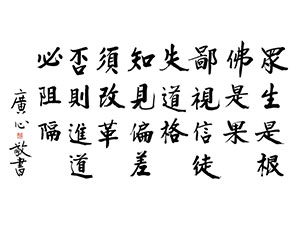 眾生是根
佛是果
鄙視信徒
失道格
知見偏差
須改革
否則進道
必阻隔
廣心敬書